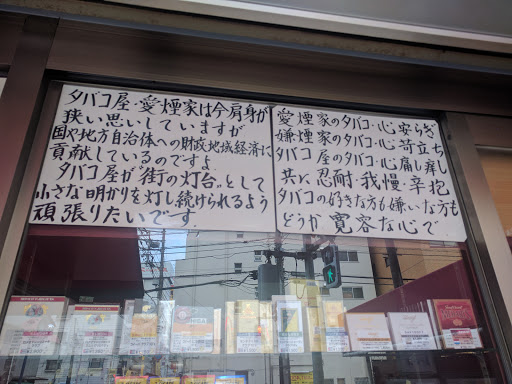 タバコ屋・愛煙家は今肩身が
狭い思いしていますが
国や地方自治体への財政地域経済に
貢献しているのですよ
タバコ屋が〝街の灯台〟として
小さな明かりを灯し続けられるよう
頑張りたいです
愛煙家のタバコ・心安らぎ
嫌煙家のタバコ・心苛立ち
タバコ屋のタバコ・心痛し痒し
共に、忍耐・我慢・辛抱
タバコの好きな方も嫌いな方も
どうか寛容な心で